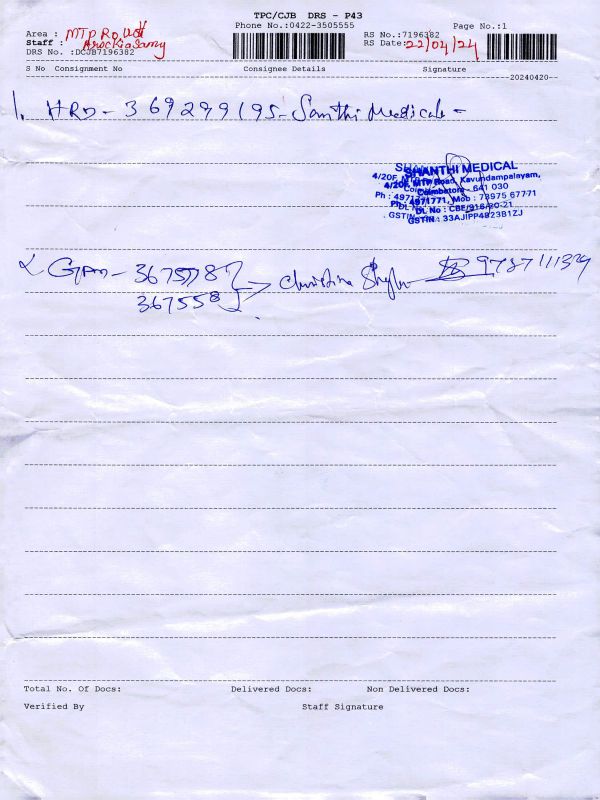 TPC/CJB DRS - P43
Phone No.:0422-3505555
Page No.:1
Area : MTP Road
Staff : Arockiasamy
DRS No. :DCJB7196382
RS No.:7196382
RS Date:22/04/24
S No Consignment No Consignee Details Signature
20240420
1. HRD - 369299195 - Santhi Medicals -
SHANTHI MEDICAL
4/20F, MTP Road, Kavundampalayam,
Coimbatore - 641 030
Ph : 4971771, Mob : 78975 67771
DL No : CBE/916/20-21
GSTIN : 33AJIPP4823B1ZJ
2
Christina 9787111329
367558
Total No. Of Docs: Delivered Docs: Non Delivered Docs:
Verified By Staff Signature